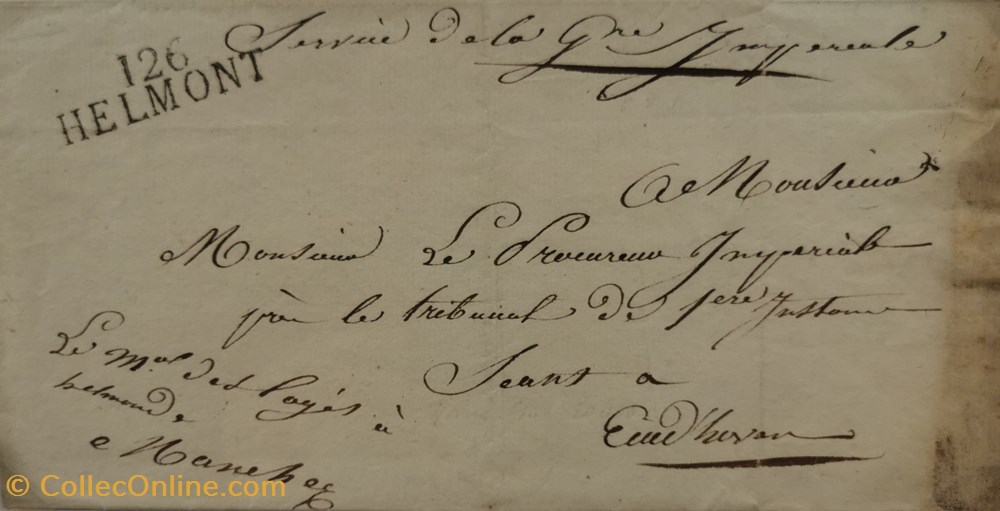 126
HELMONT
Service de la Gre Imperiale
A Monsieur
Monsieur Le Procureur Imperial
près le tribunal de 1ere Instance
Seant a
Eindhoven
Le Mal des Logis à
helmond
© CollecOnline.com